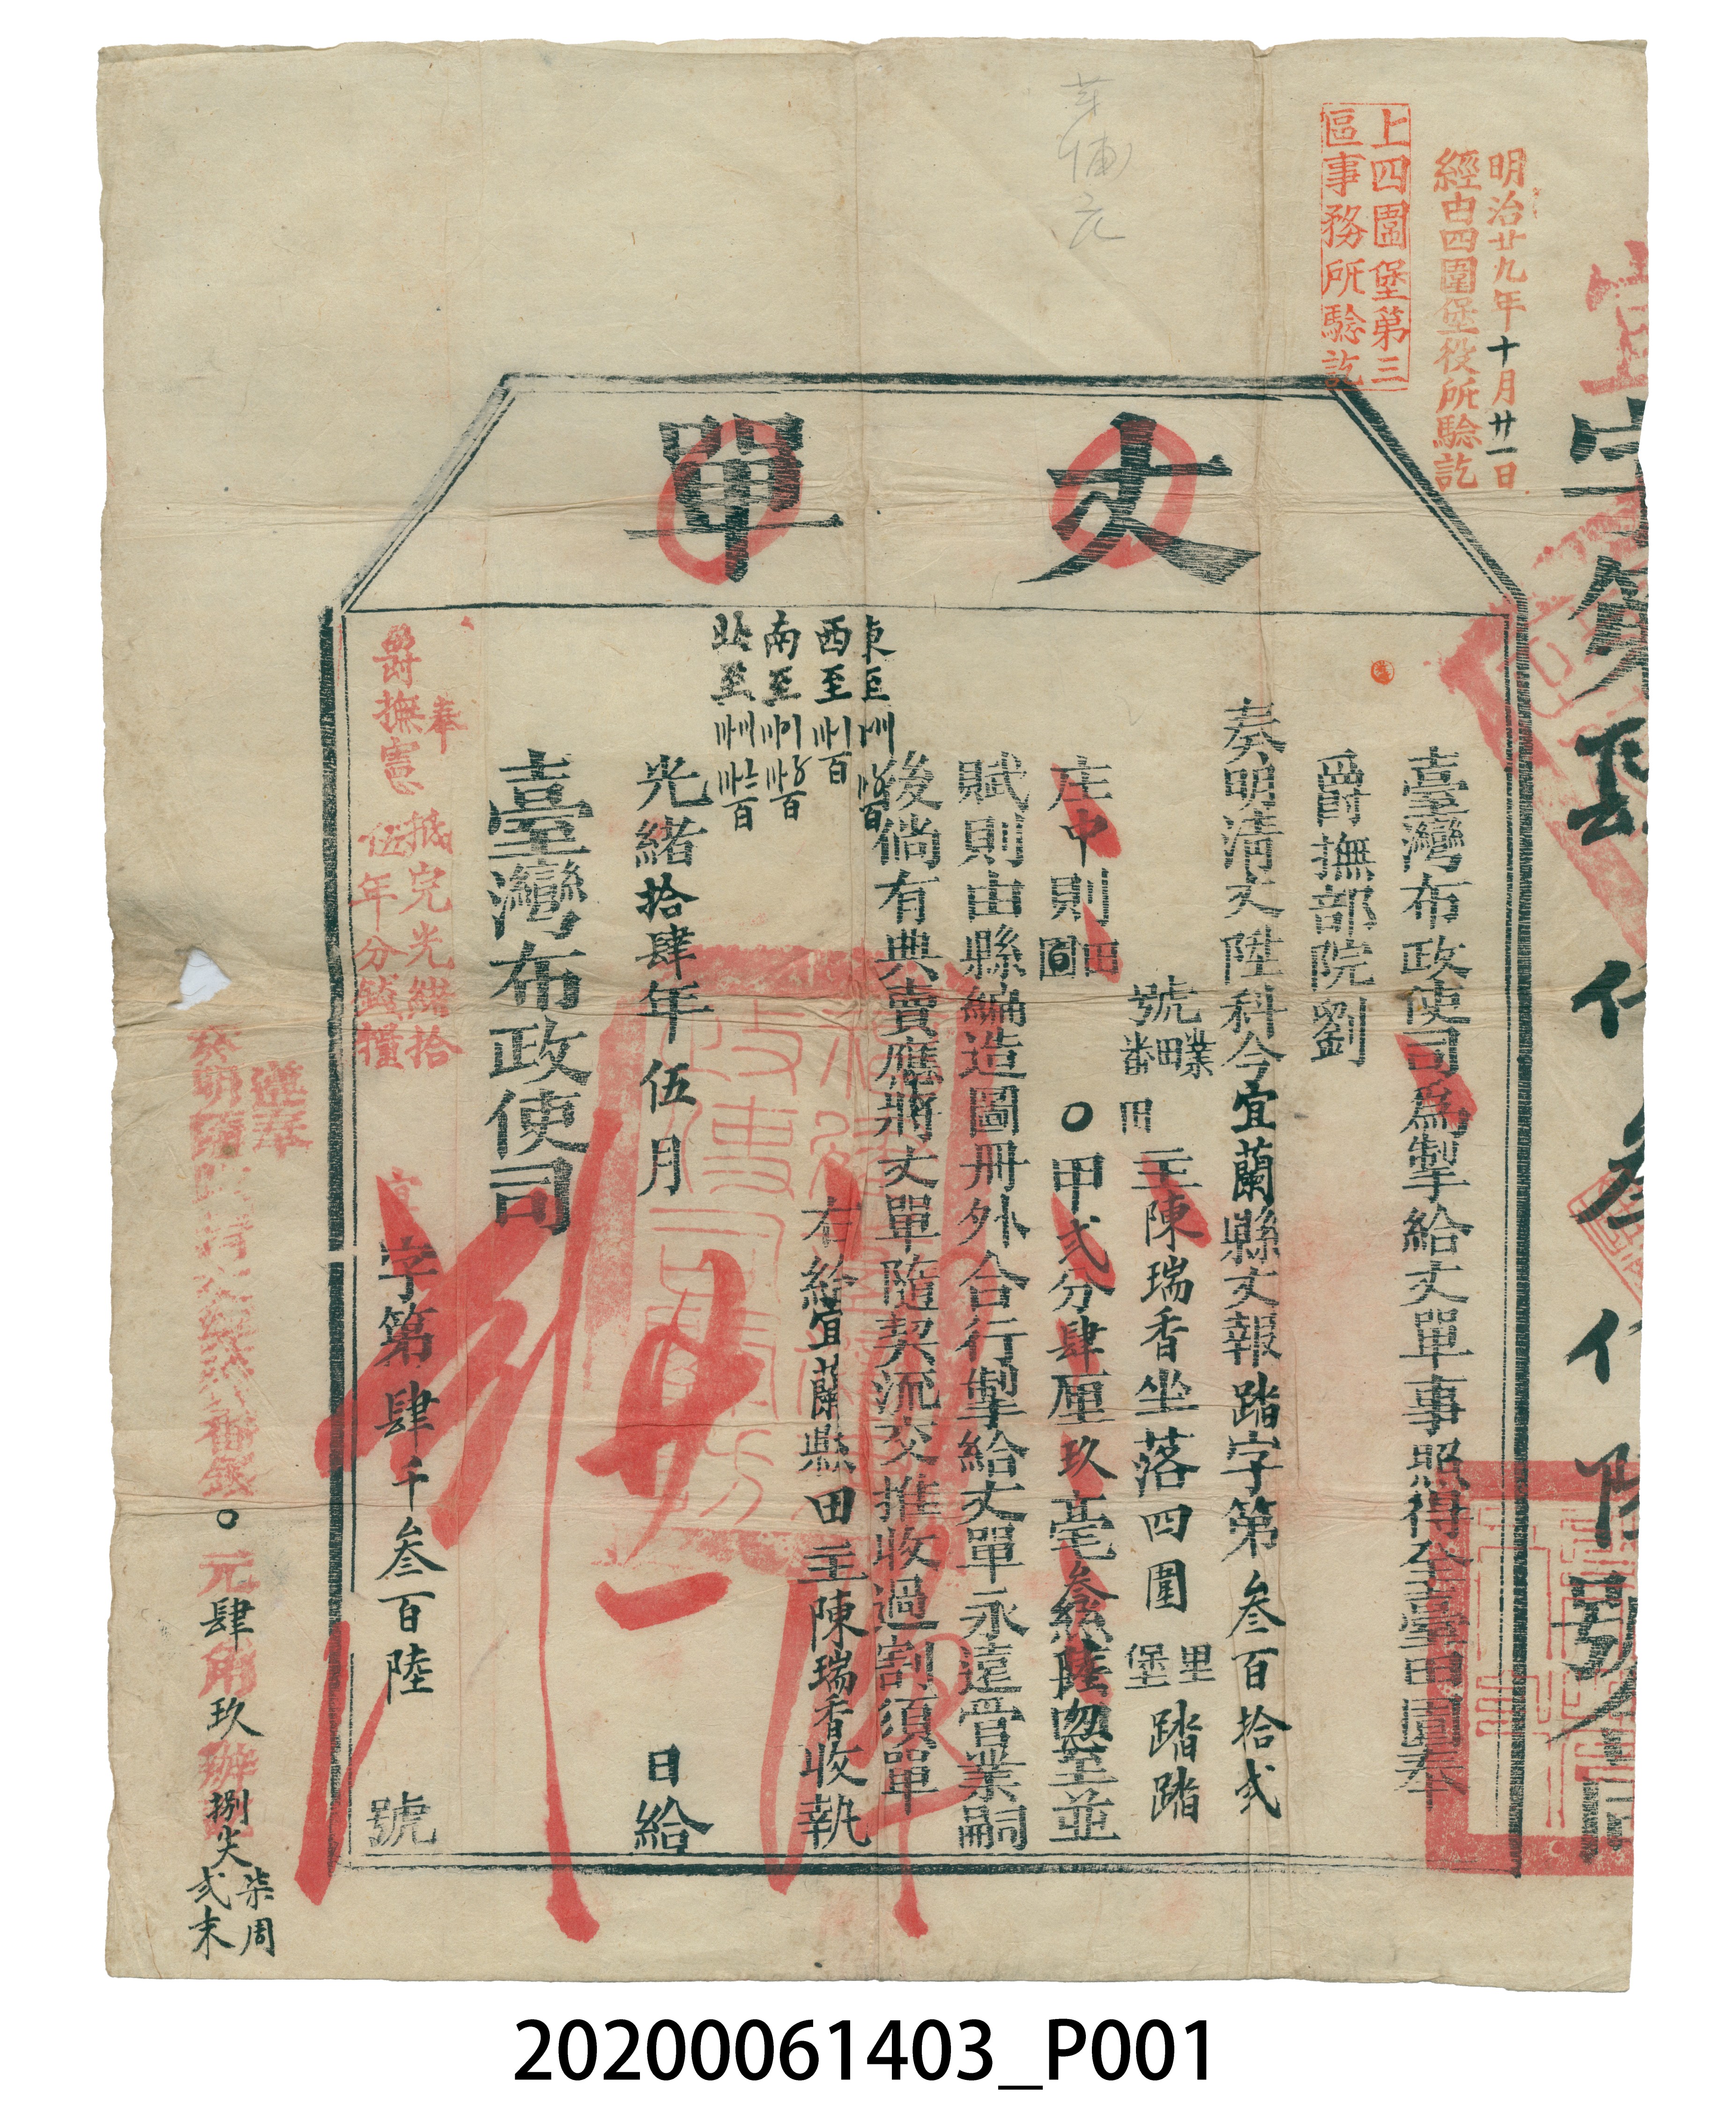 明治廿九年十月廿一日
經由四圍堡役所驗訖
上四圍堡第三
區事務所驗訖
丈單
臺灣布政使司為掣給丈單事照得全臺田園奉
爵撫部院劉
奏明清丈陞科今宜蘭縣丈報踏字第叁百拾弍
號業田主陳瑞香坐落四圍里堡踏踏
庄中則田園〇甲弍分肆厘玖毫叁絲陸忽至並
賦則由縣編造圖冊外合行掣給丈單永遠營業嗣
後倘有典賣應將丈單隨契流交推收過割須單
右給宜蘭縣田主陳瑞香收執
東至
西至
南至
北至
光緒拾肆年伍月
日給
臺灣布政使司
奉
爵撫憲
完光緒拾
伍年分錢糧
字第肆千叁百陸號
遵奉
〇元肆角玖瓣捌尖
柒周
弍末
20200061403_P001